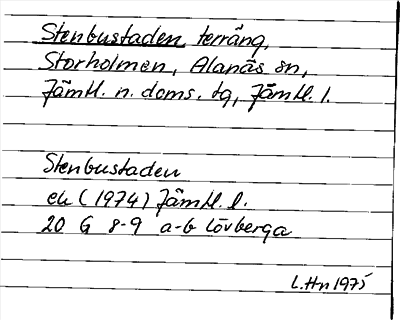 Stenbustaden terräng,
Storholmen, Alanäs sn,
Jämtl. n. doms. tg, Jämtl. l.
Stenbustaden
ek (1974) Jämtl. l.
20 G 8-9 a-b Lövberga
L.Hn 1975